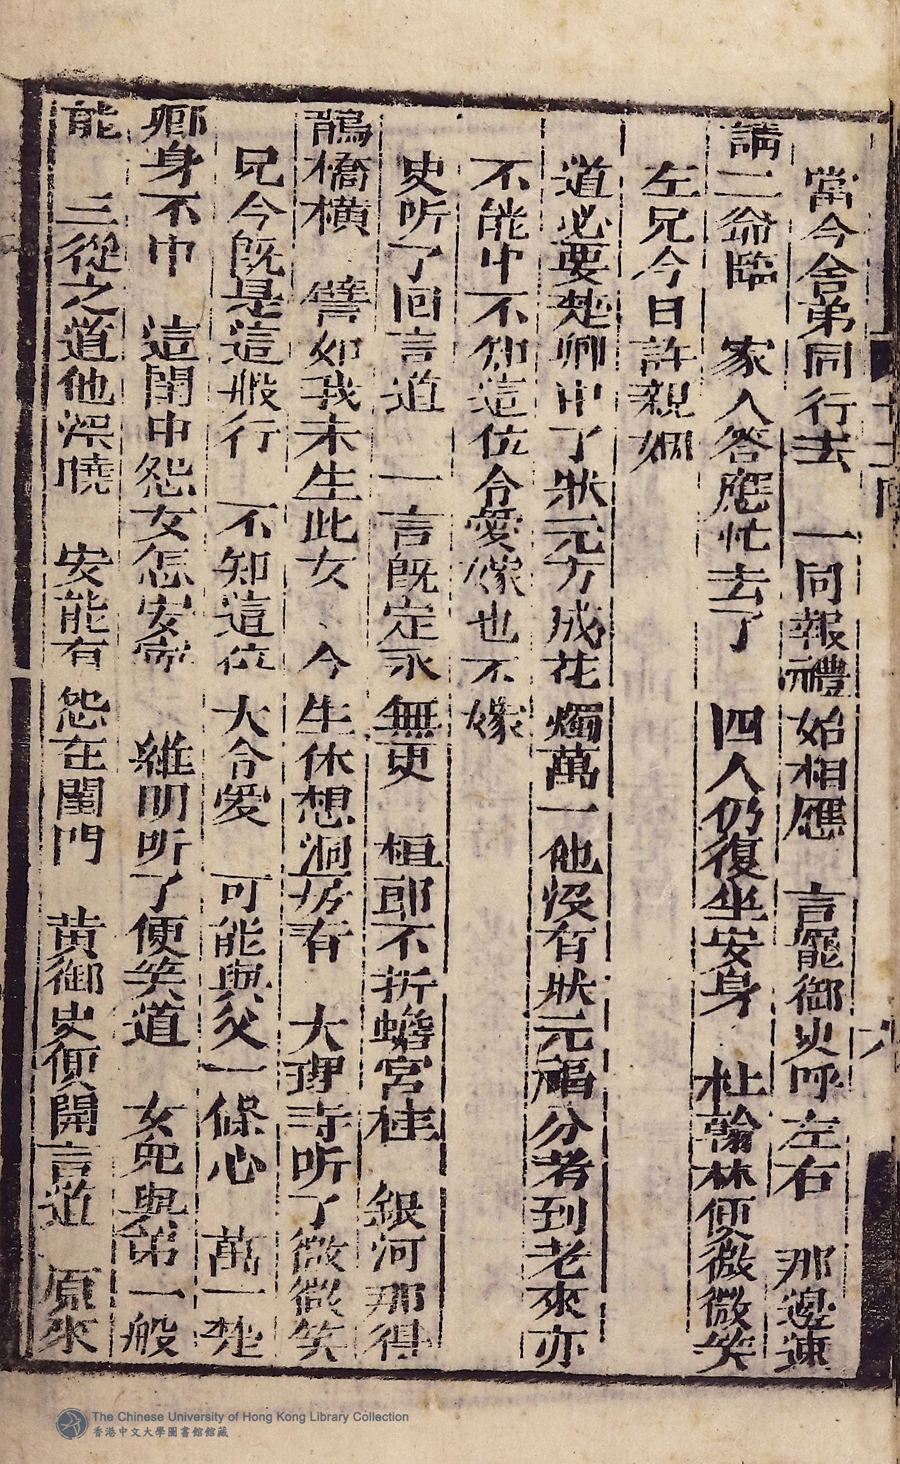 當今舍弟同行去　一同報禮始相應　言罷御史呼左右　那邊速
請二爺臨　家人答應忙去了　四人仍復坐安身　杜翰林便微微笑
左兄今日許親姻
道必要楚卿中了狀元方成花燭萬一他沒有狀元福分考到老來亦
不能中不知這位令愛嫁也不嫁
史听了回言道　一言既定永無更　桓郎不折蟾宮桂　銀河那得
鵲橋橫　譬如我未生此女　今生休想洞房有　大理寺听了微微笑
兄今既是這般行　不知這位大令愛　可能與父一條心　萬一楚
卿身不中　這閨中怨女怎安寧　維明听了便笑道　女兒與弟一般
能　三從之道他深曉　安能有怨在閨門　黃御史便開言道　原來
The Chinese University of Hong Kong Library Collection
香港中文大學圖書館館藏